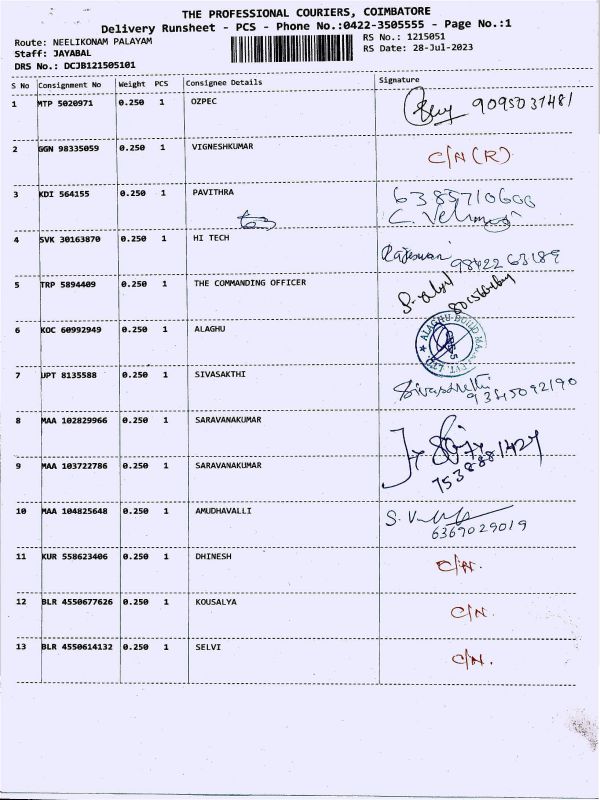 THE PROFESSIONAL COURIERS, COIMBATORE
Delivery Runsheet - PCS - Phone No.:0422-3505555 - Page No.:1
Route: NEELIKONAM PALAYAM
RS No.: 1215051
Staff: JAYABAL
RS Date: 28-Jul-2023
DRS No.: DCJB121505101
S No Consignment No Weight PCS Consignee Details Signature
1 MTP 5020971 0.250 1 OZPEC 9095031481
2 GGN 98335059 0.250 1 VIGNESHKUMAR C/N (R)
3 KDI 564155 0.250 1 PAVITHRA 6385710600
C.
4 SVK 30163870 0.250 1 HI TECH Rajeswari 9842263189
5 TRP 5894409 0.250 1 THE COMMANDING OFFICER
6 KOC 60992949 0.250 1 ALAGHU
7 UPT 8135588 0.250 1 SIVASAKTHI Sivasakthi 9345092190
8 MAA 102829966 0.250 1 SARAVANAKUMAR
9 MAA 103722786 0.250 1 SARAVANAKUMAR 7538881427
10 MAA 104825648 0.250 1 AMUDHAVALLI S.
6369029019
11 KUR 558623406 0.250 1 DHINESH C/N.
12 BLR 4550677626 0.250 1 KOUSALYA C/N.
13 BLR 4550614132 0.250 1 SELVI C/N.